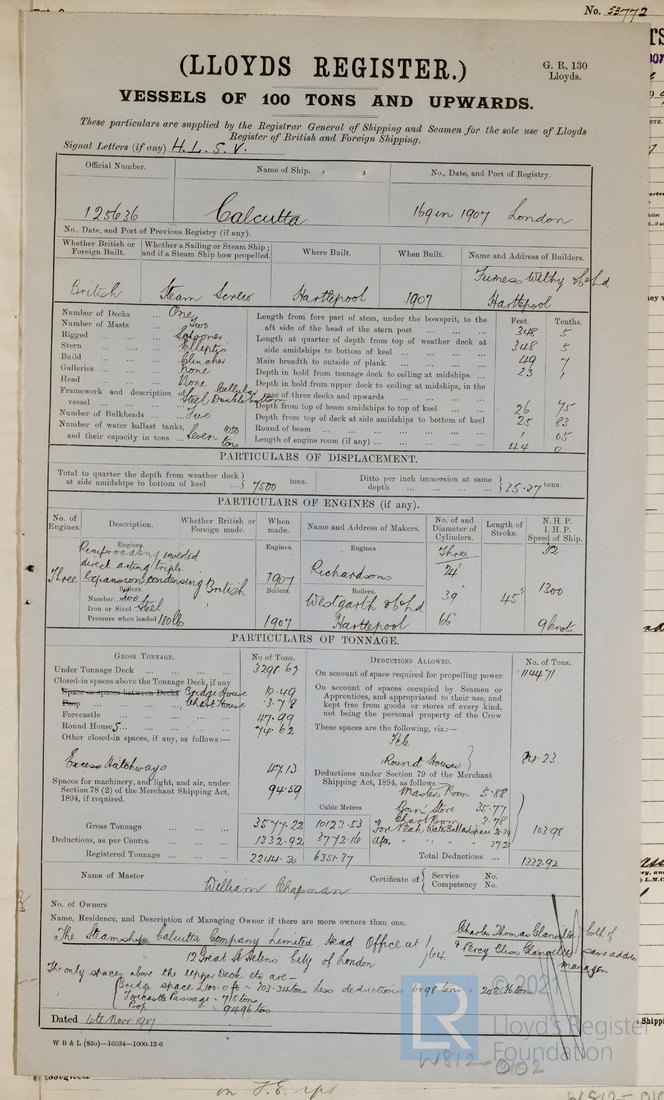 No. 53772
(LLOYDS REGISTER.)
G. R. 130
Lloyds.
VESSELS OF 100 TONS AND UPWARDS.
These particulars are supplied by the Registrar General of Shipping and Seamen for the sole use of Lloyds
Register of British and Foreign Shipping.
Signal Letters (if any) H. L. S. V.
Official Number. Name of Ship. No., Date, and Port of Registry.
125636 Calcutta 169 in 1907 London
No., Date, and Port of Previous Registry (if any).
Whether British or Foreign Built. Whether a Sailing or Steam Ship; and if a Steam Ship how propelled. Where Built. When Built. Name and Address of Builders.
British Steam Screw Hartlepool 1907 Furness Withy & Co Ld Hartlepool
Number of Decks ... One
Number of Masts ... Two
Rigged ... Schooner
Stern ... Elliptic
Build ... Clincher
Galleries ... None
Head ... None
Framework and description of vessel ... Steel Cellular Double bottom
Number of Bulkheads ... Five
Number of water ballast tanks, and their capacity in tons ... Seven 1050 tons
Feet. Tenths.
Length from fore part of stem, under the bowsprit, to the aft side of the head of the stern post 348 5
Length at quarter of depth from top of weather deck at side amidships to bottom of keel 348 5
Main breadth to outside of plank 49 7
Depth in hold from tonnage deck to ceiling at midships 23 1
Depth in hold from upper deck to ceiling at midships, in the case of three decks and upwards
Depth from top of beam amidships to top of keel 26 75
Depth from top of deck at side amidships to bottom of keel 25 83
Round of beam 1 05
Length of engine room (if any) 44 0
PARTICULARS OF DISPLACEMENT.
Total to quarter the depth from weather deck at side amidships to bottom of keel 7500 tons.
Ditto per inch immersion at same depth 35.27 tons
PARTICULARS OF ENGINES (if any).
No. of Engines. Description. Whether British or Foreign made. When made. Name and Address of Makers. No. of and Diameter of Cylinders. Length of Stroke. N.H.P. I.H.P. Speed of Ship.
Engines. Engines. Engines
Reciprocating inverted
direct acting triple
Three expansion condensing British 1907 Richardsons Three 24"
Boilers. Boilers. Boilers.
Number two
Iron or Steel Steel Westgarth & Co Ld 39 45" 1300
Pressure when loaded 180 lbs 1907 Hartlepool 66" 9 knots
PARTICULARS OF TONNAGE.
GROSS TONNAGE. No of Tons.
Under Tonnage Deck 3298.62
Closed-in spaces above the Tonnage Deck, if any
Space or spaces between Decks Bridge House 10.49
Poop Chart House 3.78
Forecastle 47.99
Round Houses 74.62
Other closed-in spaces, if any, as follows:—
Excess Hatchways 47.13
Spaces for machinery, and light, and air, under Section 78 (2) of the Merchant Shipping Act, 1894, if required. 94.59
Cubic Metres
Gross Tonnage 3577.22 10123.53
Deductions, as per Contra 1332.92 3772.16
Registered Tonnage 2244.30 6351.37
DEDUCTIONS ALLOWED. No. of Tons.
On account of space required for propelling power 1144.71
On account of spaces occupied by Seamen or Apprentices, and appropriated to their use, and kept free from goods or stores of every kind, not being the personal property of the Crew
These spaces are the following, viz.:—
Round House 84.23
Deductions under Section 79 of the Merchant Shipping Act, 1894, as follows:—
Masters Room 5.88
Store 35.77
Chart Room 3.78
Fore Peak Water Ballast space
Aft
103.98
Total Deductions 1332.92
Name of Master William Chapman
Certificate of Service No. Competency No.
No. of Owners
Name, Residence, and Description of Managing Owner if there are more owners than one.
The Steamship Calcutta Company Limited Head Office at
12 Great St Helens City of London 64/64
Charles Thomas Glanville
& Percy Elias Glanville
both of same address managers
The only spaces above the Upper Deck etc are:—
Bridge space
Forecastle Passage = 7.15 tons
Poop = 94.96 tons
Dated 4th Novr 1907
W B & L (83o)—16034—1000-12-6
LR
© 2021
Lloyd's Register
Foundation
W812-0102
on F.E. rpt
W812-010